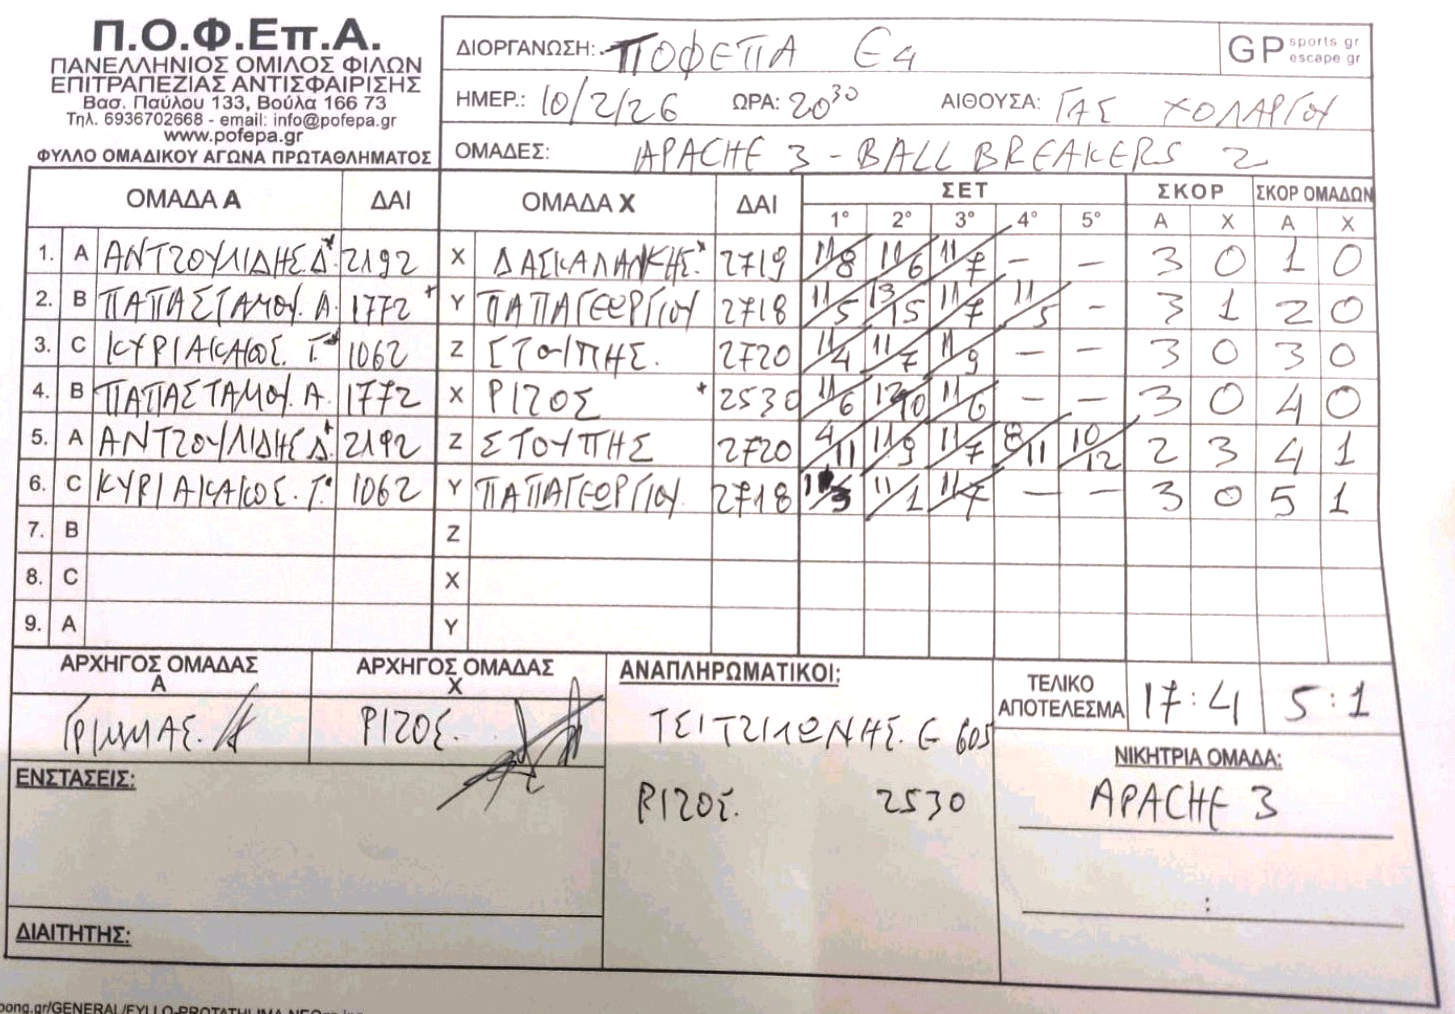 Π.Ο.Φ.Επ.Α.
ΠΑΝΕΛΛΗΝΙΟΣ ΟΜΙΛΟΣ ΦΙΛΩΝ
ΕΠΙΤΡΑΠΕΖΙΑΣ ΑΝΤΙΣΦΑΙΡΙΣΗΣ
Βασ. Παύλου 133, Βούλα 166 73
Τηλ. 6936702668 - email: info@pofepa.gr
www.pofepa.gr
ΦΥΛΛΟ ΟΜΑΔΙΚΟΥ ΑΓΩΝΑ ΠΡΩΤΑΘΛΗΜΑΤΟΣ
ΔΙΟΡΓΑΝΩΣΗ: ΠΟΦΕΠΑ Ε4
GP sports gr escape gr
ΗΜΕΡ.: 10/2/26 ΩΡΑ: 20 30 ΑΙΘΟΥΣΑ: ΓΑΣ ΧΟΛΑΡΓΟΥ
ΟΜΑΔΕΣ: APACHE 3 - BALL BREAKERS 2
ΟΜΑΔΑ Α ΔΑΙ ΟΜΑΔΑ Χ ΔΑΙ ΣΕΤ ΣΚΟΡ ΣΚΟΡ ΟΜΑΔΩΝ
1° 2° 3° 4° 5° Α Χ Α Χ
1. A ΑΝΤΖΟΥΛΙΔΗΣ Δ* 2192 X ΔΑΣΚΑΛΑΚΗΣ.* 2719 11/8 11/6 11/7 — — 3 0 1 0
2. B ΠΑΠΑΣΤΑΜΟΥ. Α. 1772 Y ΠΑΠΑΓΕΩΡΓΙΟΥ 2718 11/5 13/15 11/7 11/5 - 3 1 2 0
3. C ΚΥΡΙΑΚΑΚΟΣ. Γ. 1062 Z ΣΤΟΥΠΗΣ. 2720 11/4 11/7 11/9 — — 3 0 3 0
4. B ΠΑΠΑΣΤΑΜΟΥ. Α 1772 X ΡΙΖΟΣ * 2530 11/6 12/10 11/6 — — 3 0 4 0
5. A ΑΝΤΖΟΥΛΙΔΗΣ Δ. 2192 Z ΣΤΟΥΠΗΣ 2720 4/11 11/9 11/7 8/11 10/12 2 3 4 1
6. C ΚΥΡΙΑΚΑΚΟΣ. Γ. 1062 Y ΠΑΠΑΓΕΩΡΓΙΟΥ 2718 11/3 11/1 11/7 — — 3 0 5 1
7. B Z
8. C X
9. A Y
ΑΡΧΗΓΟΣ ΟΜΑΔΑΣ Α ΑΡΧΗΓΟΣ ΟΜΑΔΑΣ Χ ΑΝΑΠΛΗΡΩΜΑΤΙΚΟΙ: ΤΕΛΙΚΟ ΑΠΟΤΕΛΕΣΜΑ 17:4 5:1
ΡΙΖΟΣ. 605
ΝΙΚΗΤΡΙΑ ΟΜΑΔΑ:
ΕΝΣΤΑΣΕΙΣ:
ΡΙΖΟΣ. 2530
APACHE 3
:
ΔΙΑΙΤΗΤΗΣ: